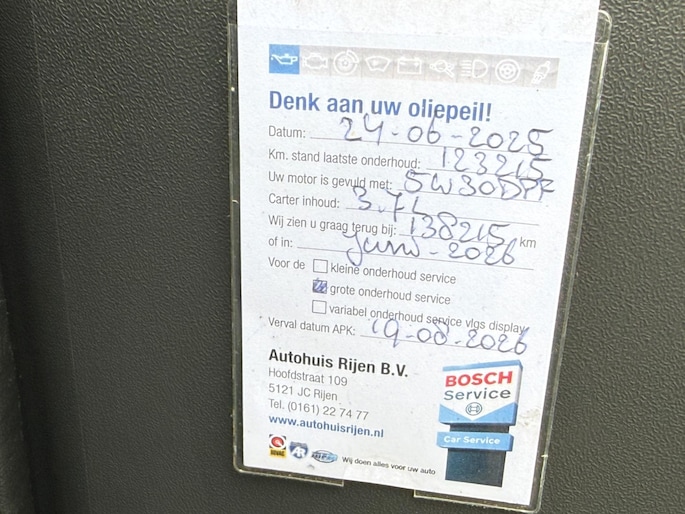 Denk aan uw oliepeil!
Datum: 24-06-2025
Km. stand laatste onderhoud: 123215
Uw motor is gevuld met: 5W30DPF
Carter inhoud: 3.7L
Wij zien u graag terug bij: 138215 km
of in: juni-2026
Voor de kleine onderhoud service
grote onderhoud service
variabel onderhoud service vlgs display
Verval datum APK: 19-08-2026
Autohuis Rijen B.V.
Hoofdstraat 109
5121 JC Rijen
Tel. (0161) 22 74 77
www.autohuisrijen.nl
BOSCH
Service
Car Service
BOVAG
Wij doen alles voor uw auto